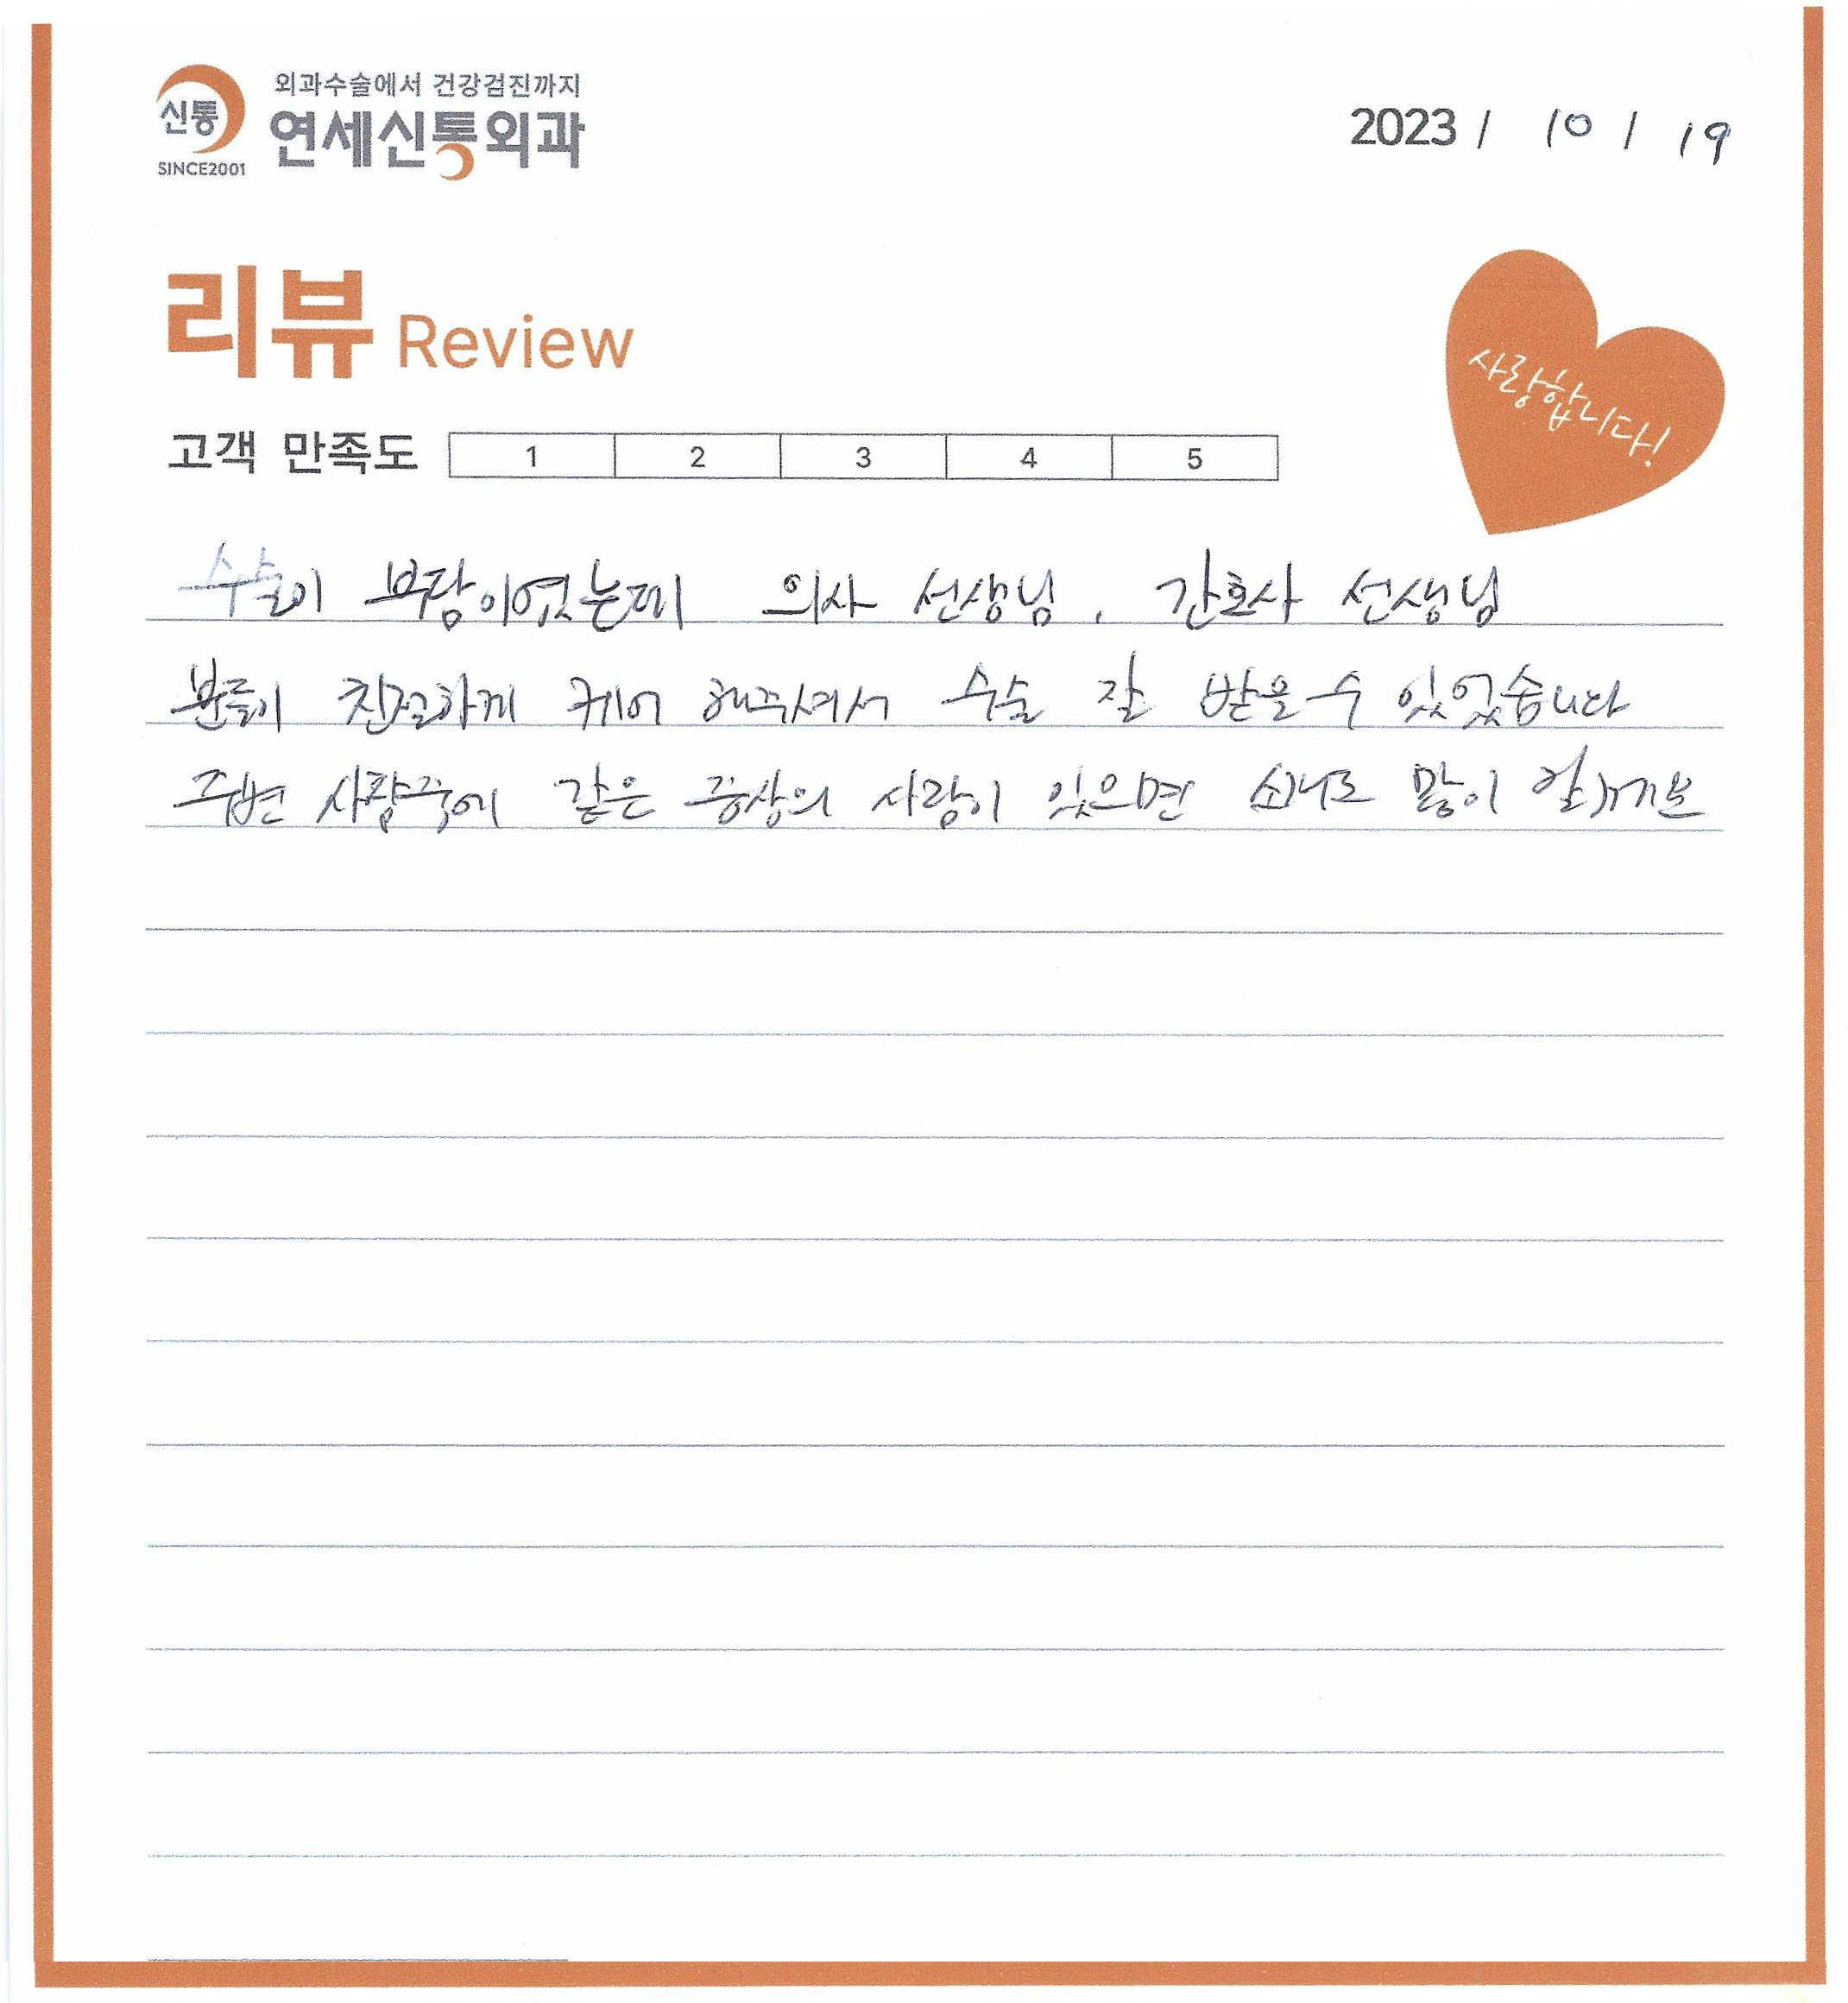 외과수술에서 건강검진까지
신통 연세신통외과
SINCE2001
2023 / 10 / 19
리뷰 Review
사랑합니다!
고객 만족도 1 2 3 4 5
수술이 부담이였는데 의사 선생님, 간호사 선생님
분들이 친절하게 케어 해주셔서 수술 잘 받을 수 있었습니다
주변 사람중에 같은 증상의 사람이 있으면 소개로 많이 할께요